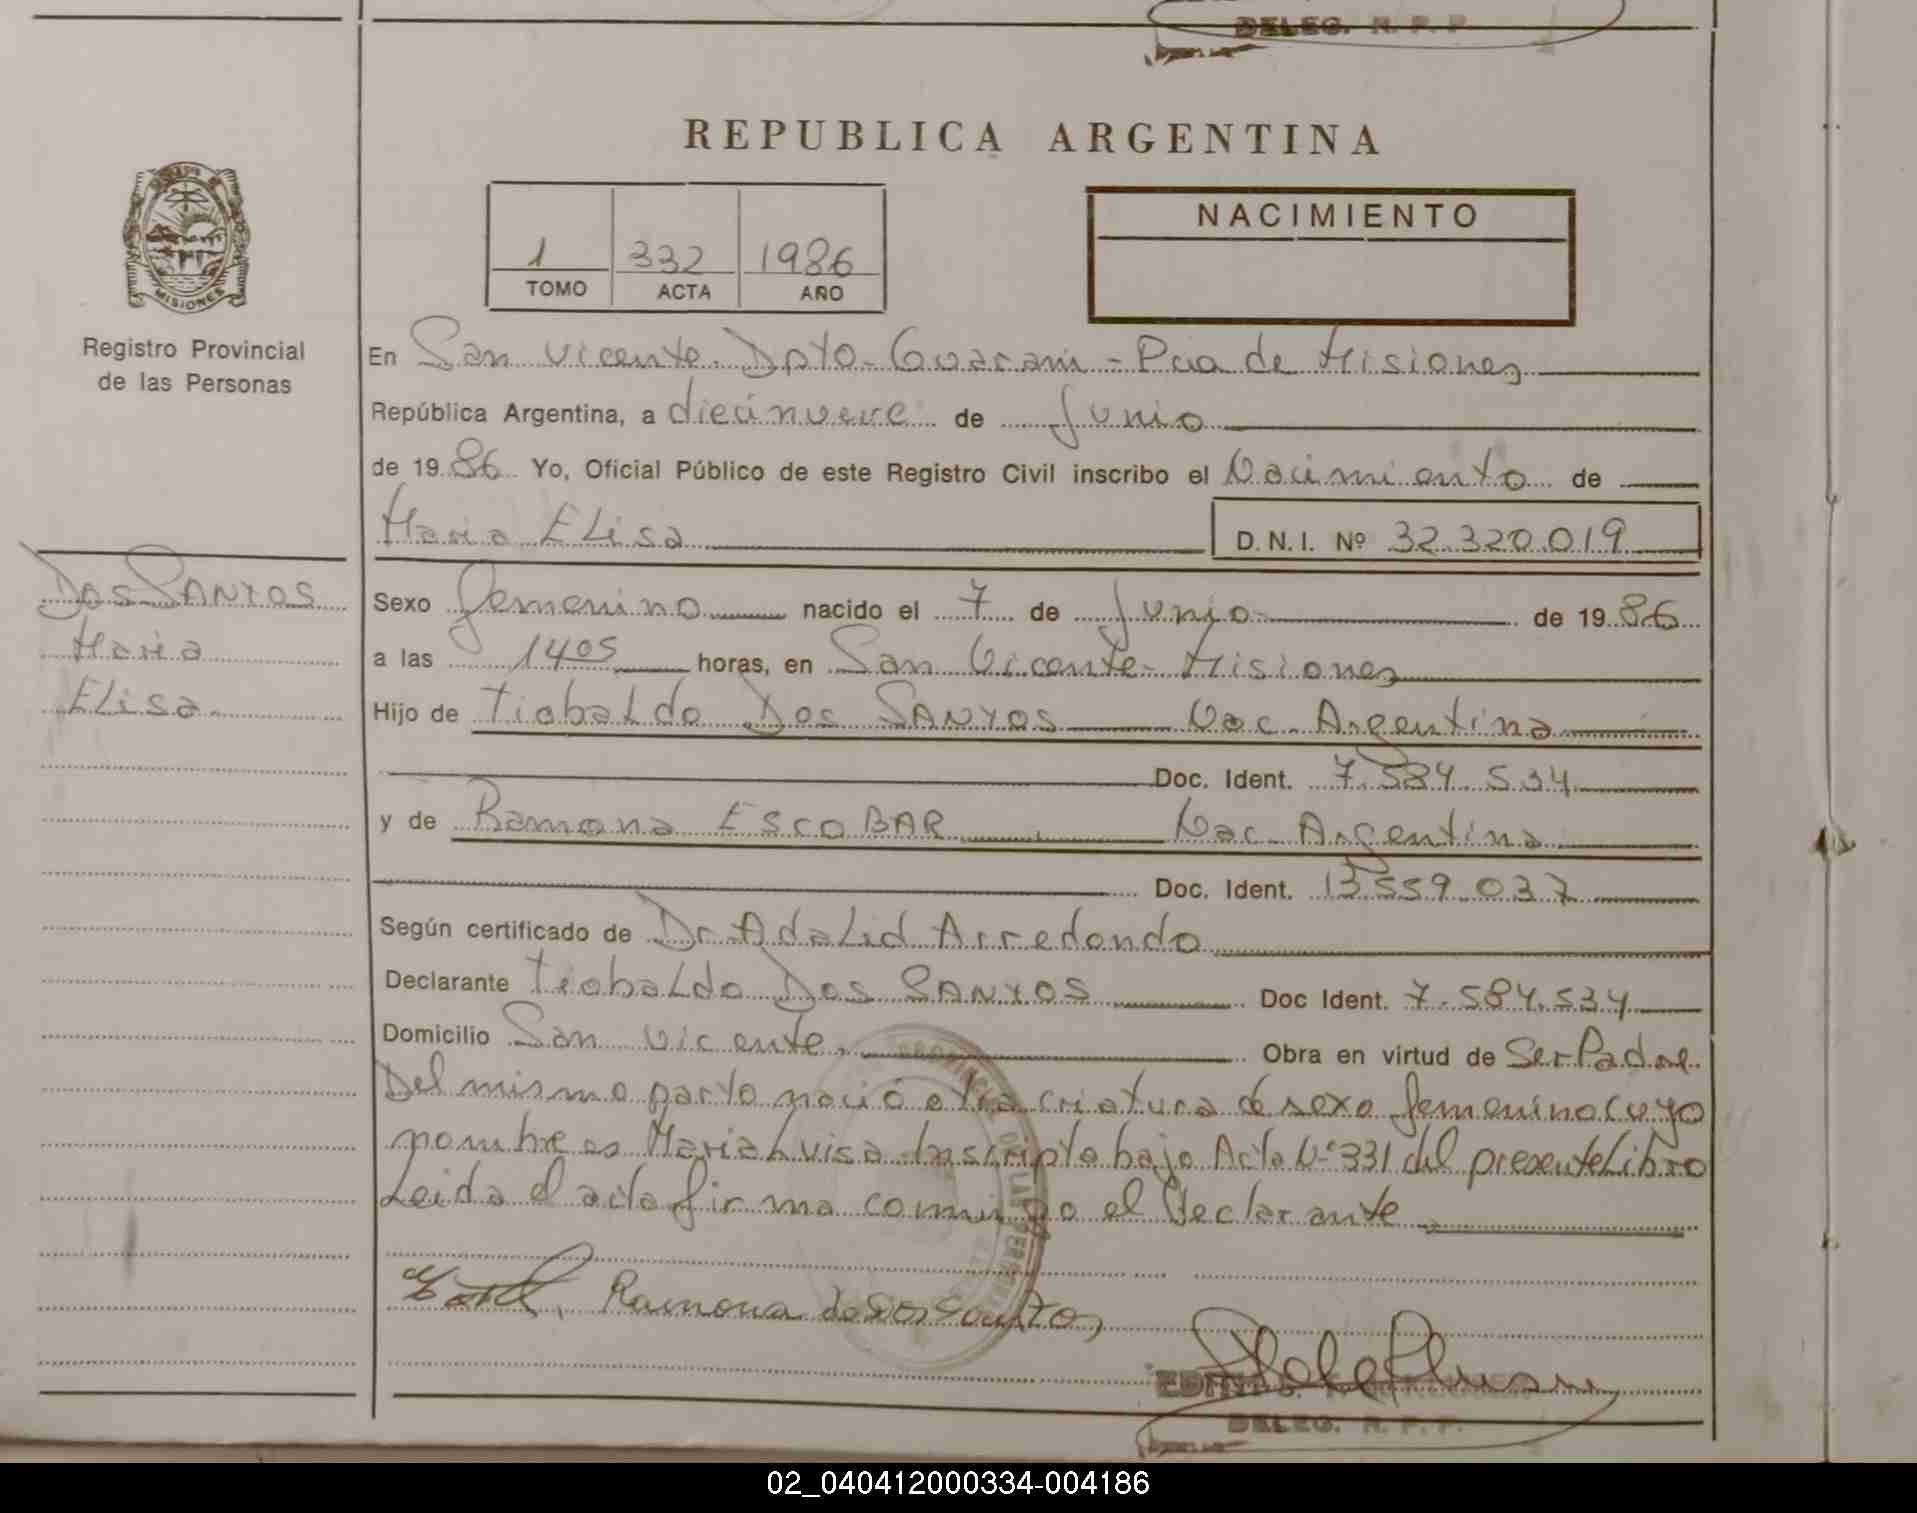 DELEG. R. P. P.
REPUBLICA ARGENTINA
MISIONES
Registro Provincial
de las Personas
1 332 1986
TOMO ACTA AÑO
NACIMIENTO
En San Vicente. Dpto-Guarani-Pcia de Misiones
República Argentina, a diecinueve de Junio
de 1986 Yo, Oficial Público de este Registro Civil inscribo el Nacimiento de
Maria Elisa D.N.I. Nº 32.320.019
Dos SANTOS
Maria
Elisa
Sexo femenino nacido el 7 de Junio de 1986
a las 1405 horas, en San Vicente-Misiones
Hijo de Tiobaldo Dos SANTOS Nac. Argentina
Doc. Ident. 7.584.534
y de Ramona ESCOBAR Nac Argentina
Doc. Ident. 13.559.037
Según certificado de Dr Adalid Arredondo
Declarante Tiobaldo Dos SANTOS Doc Ident. 7.584.534
Domicilio San Vicente. Obra en virtud de Ser Padre
Del mismo parto nació otra criatura de sexo femenino cuyo
nombre es Maria Luisa Inscripta bajo Acta Nº 331 del presente Libro
Leida el acta firma conmigo el Declarante
Ramona de Dos Santos
DELEG. R. P. P.
02_040412000334-004186